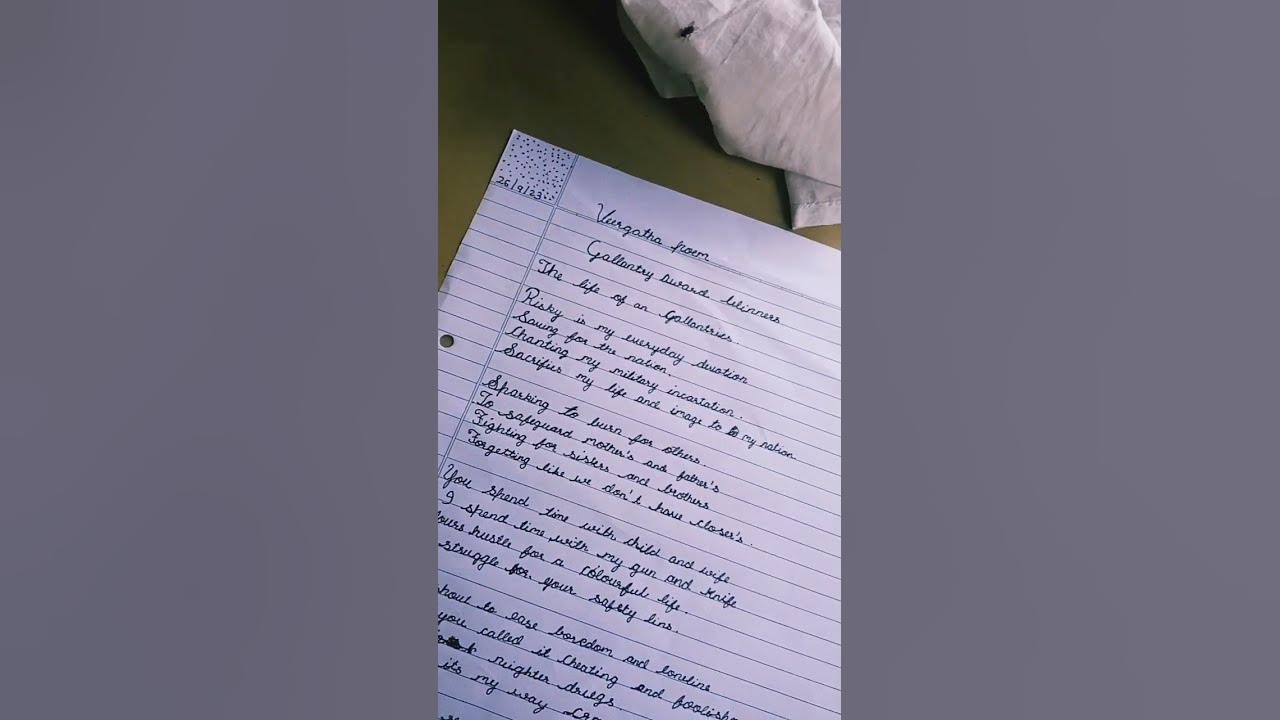 26/9/23
Veergatha poem
Gallantry award Winners
The life of an Gallantries.
Risky is my everyday devotion
Saving for the nation.
Chanting my military incartation.
Sacrifies my life and image to my nation.
Sparking to burn for others.
To safeguard mother's and father's
Fighting for sisters and brothers
Forgetting like we don't have closer's.
You spend time with child and wife
I spend time with my gun and Knife
ours hustle for a colourful life.
struggle for your safety lins.
hout to ease boredom and lonline
you called it cheating and foolishn
neighter drugs.
its my way